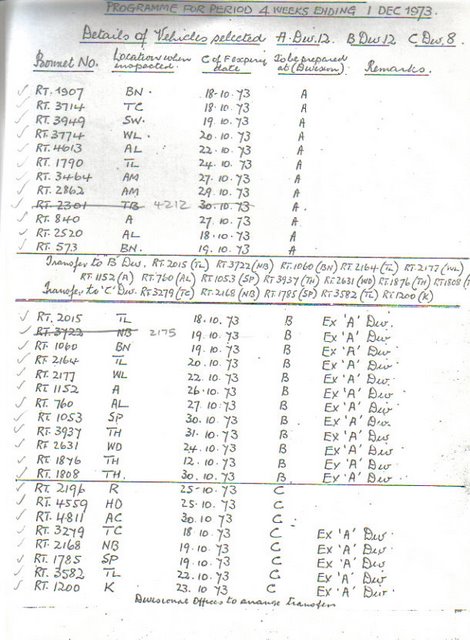 PROGRAMME FOR PERIOD 4 WEEKS ENDING 1 DEC 1973.
Details of Vehicles selected A Div. 12. B Div 12 C Div. 8.
Bonnet No. Location when inspected. C of F expiry date To be prepared at (Division) Remarks.
✓ RT. 1907 BN. 18-10.73 A
✓ RT. 3714 TC 18.10.73 A
✓ RT. 3949 SW. 19.10.73 A
✓ RT. 3774 WL. 20.10.73 A
✓ RT. 4613 AL 22.10.73 A
✓ RT. 1790 TL 24.10.73 A
✓ RT. 3464 AM 27.10.73 A
✓ RT. 2862 AM 29.10.73 A
✓ RT. 2301 TB 4212 30.10.73 A.
✓ RT. 840 A 27.10.73 A
✓ RT. 2520 AL 18.10.73 A
✓ RT. 573 BN. 19.10.73 A
Transfer to 'B' Div. RT. 2015 (TL) RT 3722 (NB) RT. 1060 (BN) RT. 2164 (TL) RT. 2177 (WL)
RT. 1152 (A) RT. 760 (AL) RT 1053 (SP) RT. 3937 (TH) RT. 2631 (WD) RT. 1876 (TH) RT 1808 (T
Transfer to 'C' Div. RT 3279 (TC) RT. 2168 (NB) RT. 1785 (SP) RT. 3582 (TL) RT 1200 (K)
✓ RT. 2015 TL 18.10.73 B Ex 'A' Div.
✓ RT. 3722 NB 2175 19.10.73 B Ex 'A' Div
✓ RT. 1060 BN 19.10.73 B Ex 'A' Div
✓ RT. 2164 TL 20.10.73 B Ex 'A' Div
✓ RT. 2177 WL 22.10.73 B Ex 'A' Div
✓ RT. 1152 A 26.10.73 B Ex 'A' Div
✓ RT. 760 AL 27.10.73 B Ex 'A' Div
✓ RT. 1053 SP 30.10.73 B Ex 'A' Div.
✓ RT. 3937 TH 31.10.73 B Ex 'A' Div
✓ RT. 2631 WD 24.10.73 B Ex 'A' Div
✓ RT. 1876 TH 12.10.73 B Ex 'A' Div
✓ RT. 1808 TH. 30.10.73 B Ex 'A' Div
✓ RT. 2196 R 25-10.73 C
✓ RT. 4559 HD 25.10.73 C
✓ RT. 4811 AC 30.10 73 C
✓ RT. 3279 TC 18.10.73 C Ex 'A' Div
✓ RT. 2168 NB 19.10.73 C Ex 'A' Div
✓ RT. 1785 SP 19.10.73 C Ex 'A' Div
✓ RT. 3582 TL 22.10.73 C Ex 'A' Div
✓ RT. 1200 K 23.10.73 C Ex 'A' Div
Divisional Offices to arrange transfers